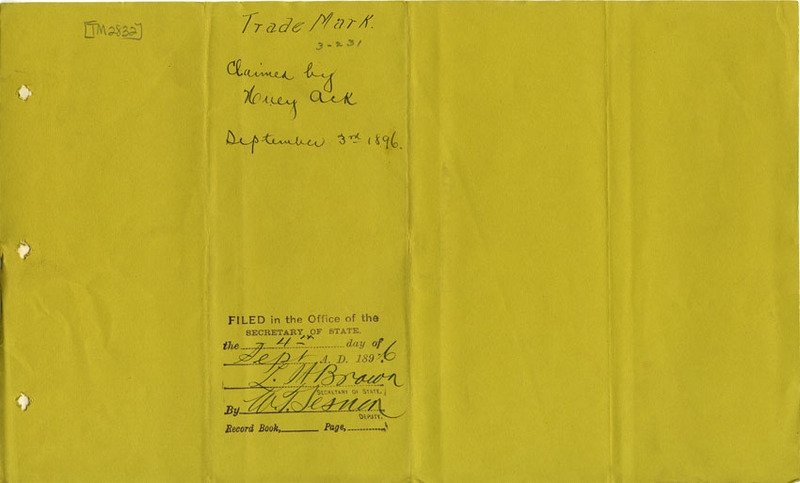 [TM2832]
Trade Mark.
3-231
Claimed by
Huey Ack
September 3rd 1896.
FILED in the Office of the
SECRETARY OF STATE.
the 4th day of
Sept A. D. 1896
L. H Brown
SECRETARY OF STATE.
By W. T. Sesnon
DEPUTY.
Record Book, Page,